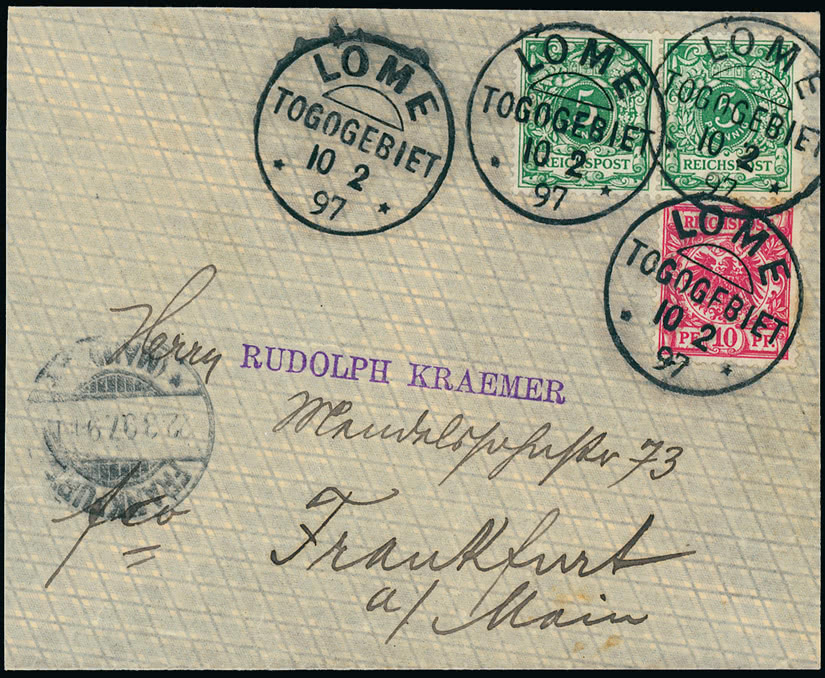 LOME
TOGOGEBIET
10 2
97
LOME
TOGOGEBIET
10 2
97
LOME
TOGOGEBIET
10 2
97
5
REICHSPOST
5
REICHSPOST
REICHSPOST
LOME
TOGOGEBIET
10 2
97
PF 10 PF.
Herrn RUDOLPH KRAEMER
Mendelssohnstr 73
FRANKFURT
22.3.97.9
(MAIN)
fco
Frankfurt
a/ Main